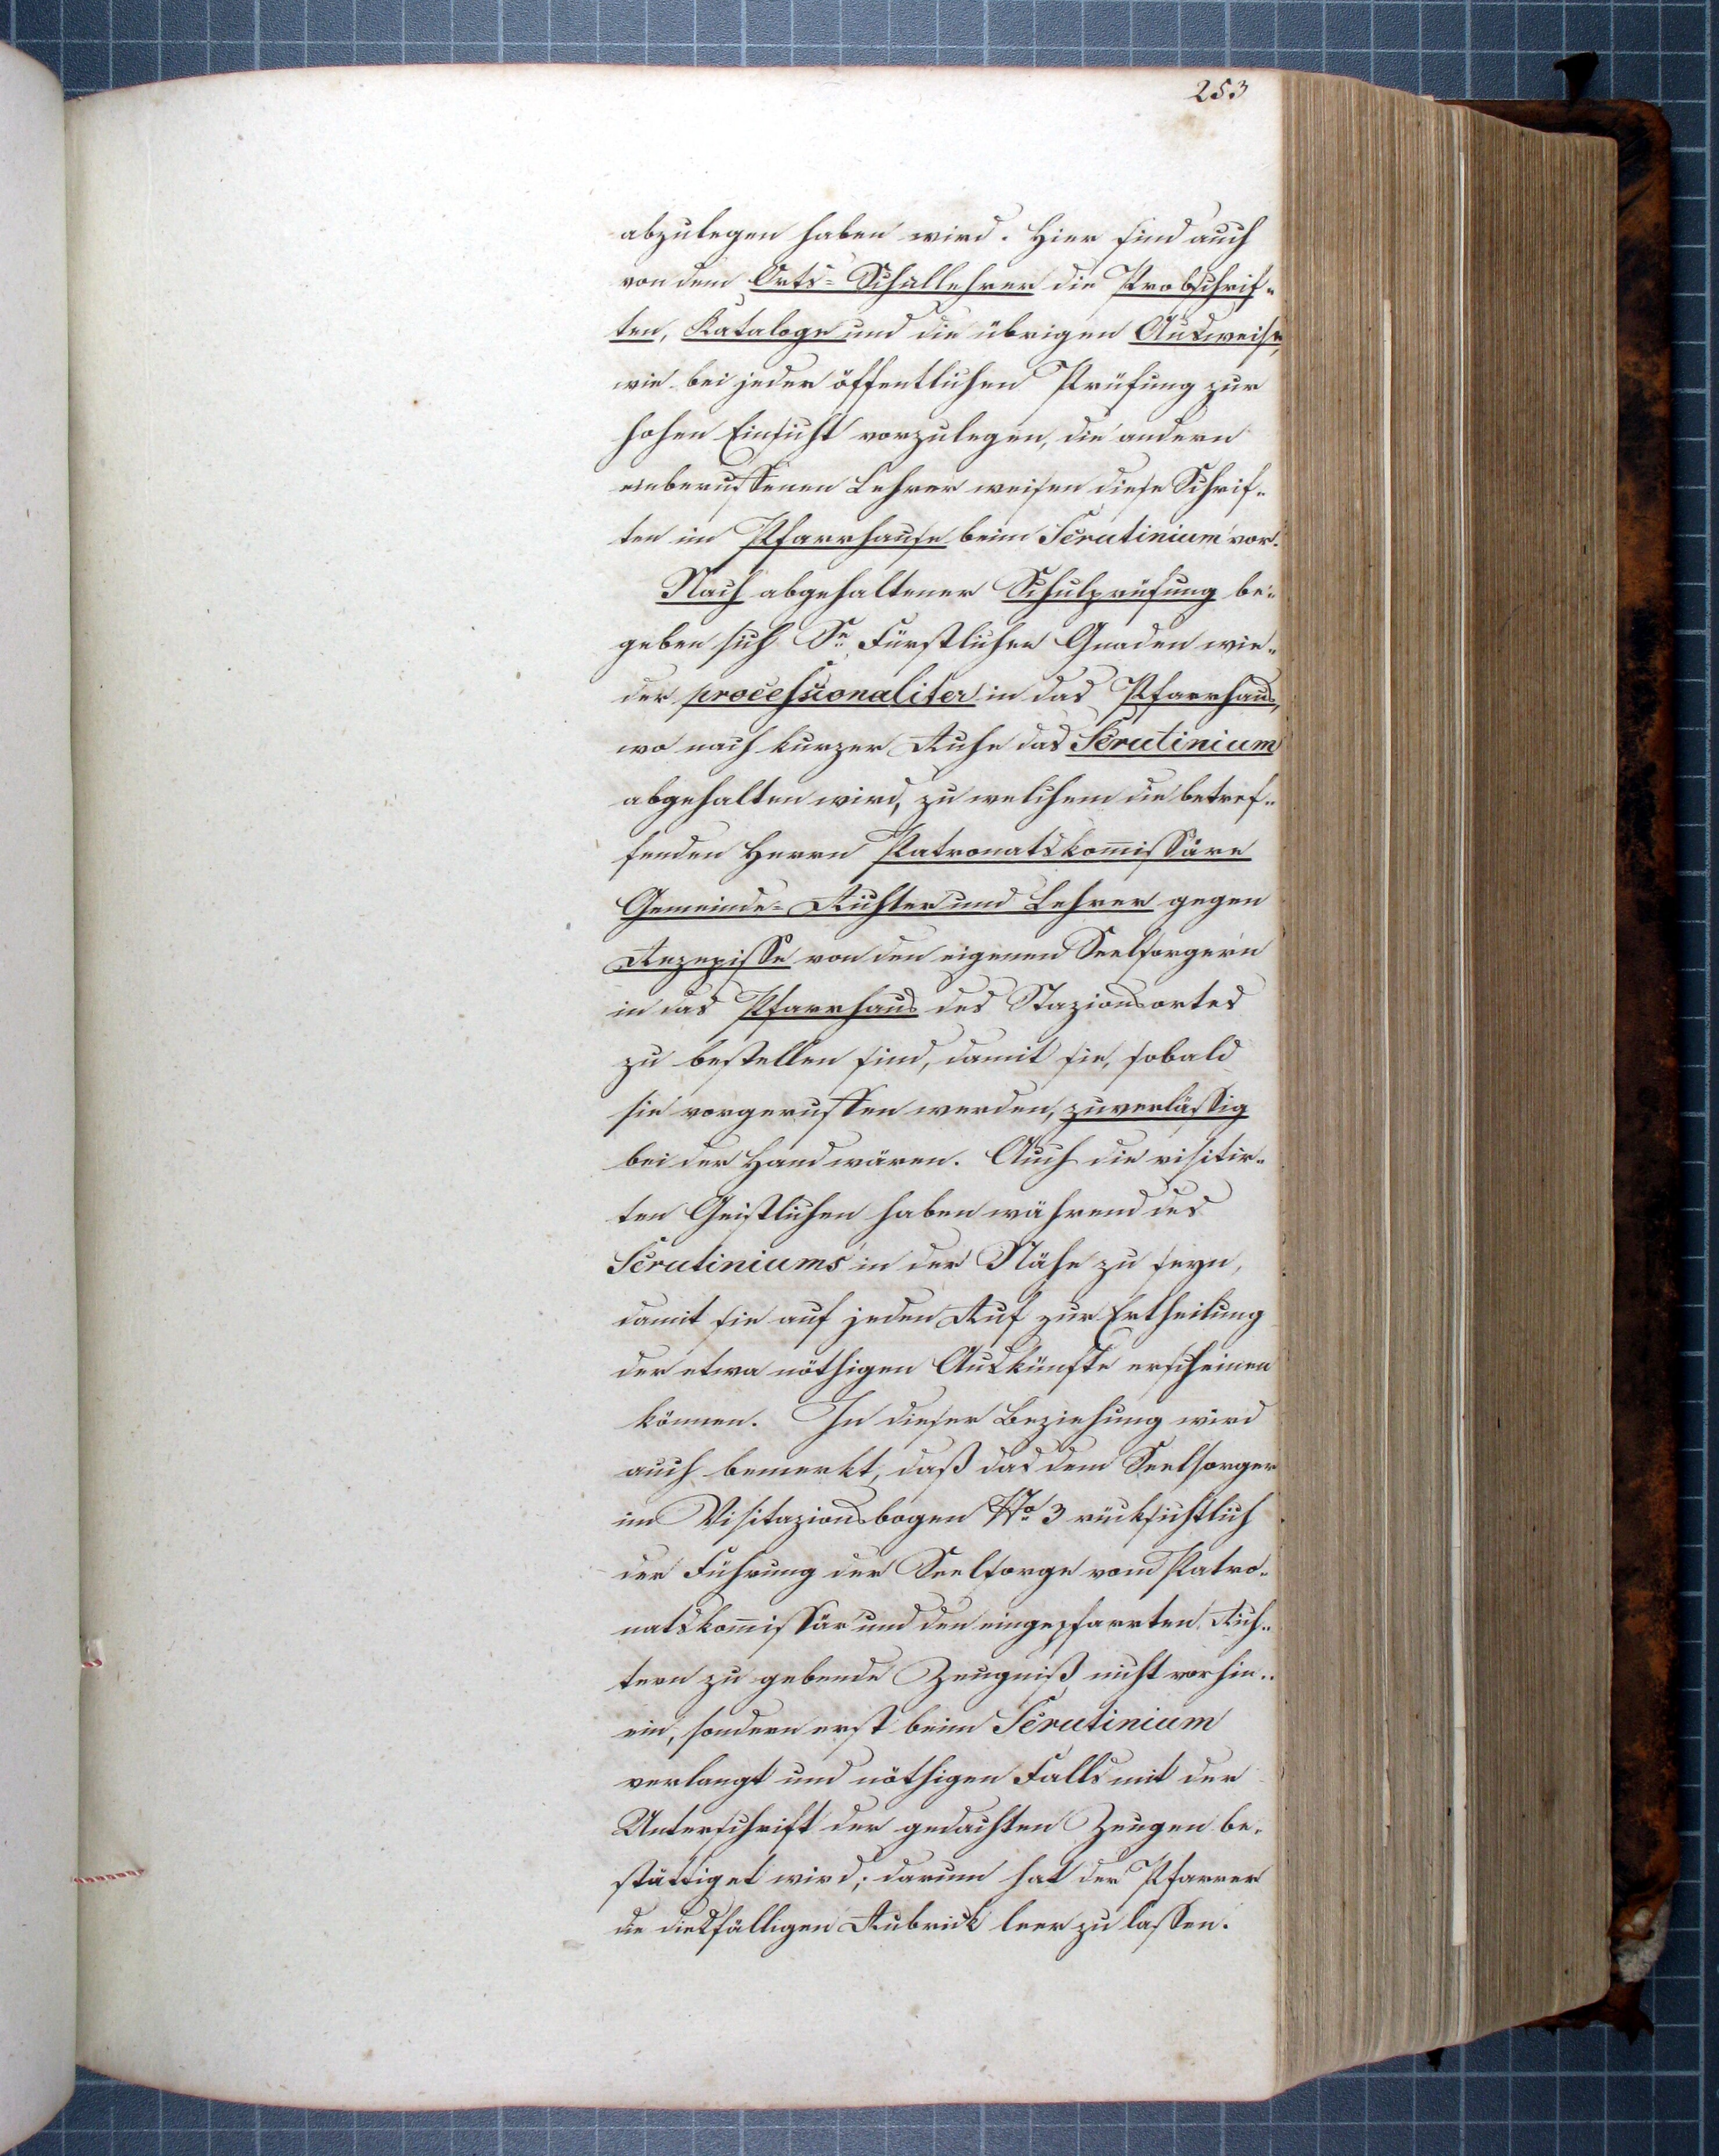 253
abzulegen haben wird. Hier sind auch
von dem Orts-Schullehrer die Probschrif-
ten, Kataloge und die übrigen Ausweise,
wie bei jeder öffentlichen Prüfung zur
hohen Einsicht vorzulegen, die andern
einberuffenen Lehrer weisen diese Schrif-
ten im Pfarrhause beim Scrutinium vor.
Nach abgehaltener Schulprüfung be-
geben sich Se Fürstlichen Gnaden wie-
der processionaliter in das Pfarrhaus,
wo nach kurzer Ruhe das Scrutinium
abgehalten wird, zu welchem die betref-
fenden Herrn Patronatskom̅issäre
Gemeinde-Richter und Lehrer gegen
Rezepisse von den eigenen Seelsorgern
in das Pfarrhaus des Stazionsortes
zu bestellen sind, damit sie, sobald
sie vorgeruffen werden, zuverlässig
bei der Hand wären. Auch die visitir-
ten Geistlichen haben während des
Scrutiniums in der Nähe zu seyn,
damit sie auf jeden Ruf zur Ertheilung
der etwa nöthigen Auskünfte erscheinen
können. In dieser Beziehung wird
auch bemerkt, daß das dem Seelsorger
im Visitazionsbogen No 3 rücksichtlich
der Führung der Seelsorge vom Patro-
natskom̅issär und den eingepfarrten Rich-
tern zu gebende Zeugniß nicht vorhin-
ein, sondern erst beim Scrutinium
verlangt und nöthigen Falls mit der
Unterschrift der gedachten Zeugen be-
stättiget wird; darum hat der Pfarrer
die dießfälligen Rubrick leer zu lassen.